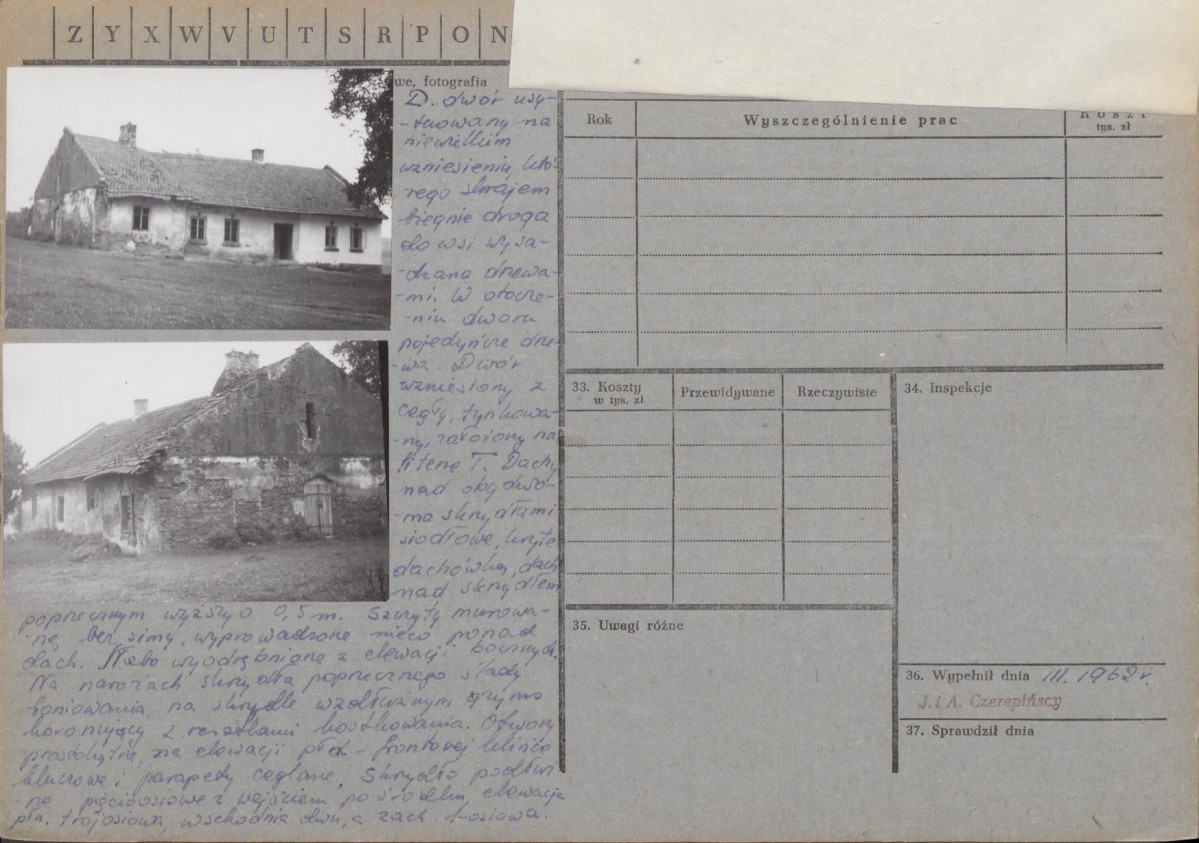 Z Y X W V U T S R P O N
we, fotografia
D. dwór usy-
-tuowany na
niewielkim
wzniesieniu, któ-
rego skrajem
biegnie droga
do wsi wysa-
-dzana drzewa-
-mi. W otocze-
-niu dworu
pojedyńcze drze-
-wa. Dwór
wzniesiony z
cegły, tynkowa-
-ny, założony na
literę T. Dachy
nad obydwo-
-ma skrzydłami
siodłowe, kryte
dachówką, dach
nad skrzydłem
poprzecznym wyższy o 0,5 m. Szczyty murowa-
-ne, bez simy, wyprowadzone nieco ponad
dach. Słabo wyodrębnione z elewacji bocznych.
Na narożach skrzydła poprzecznego ślady
boniowania, na skrzydle wzdłużnym gzyms
koronujący z resztkami kostkowania. Otwory
prostokątne, na elewacji płd. - frontowej klińce
kluczowe i parapety ceglane. Skrzydło podłuż-
-ne pięcioosiowe z wejściem po środku, elewacja
płn. trójosiowa, wschodnia dwu, a zach. 1-osiowa.
Rok
Wyszczególnienie prac
Koszt
tys. zł
33. Koszty
w tys. zł
Przewidywane
Rzeczywiste
34. Inspekcje
35. Uwagi różne
36. Wypełnił dnia III. 1962 r.
J. i A. Czerepińscy
37. Sprawdził dnia